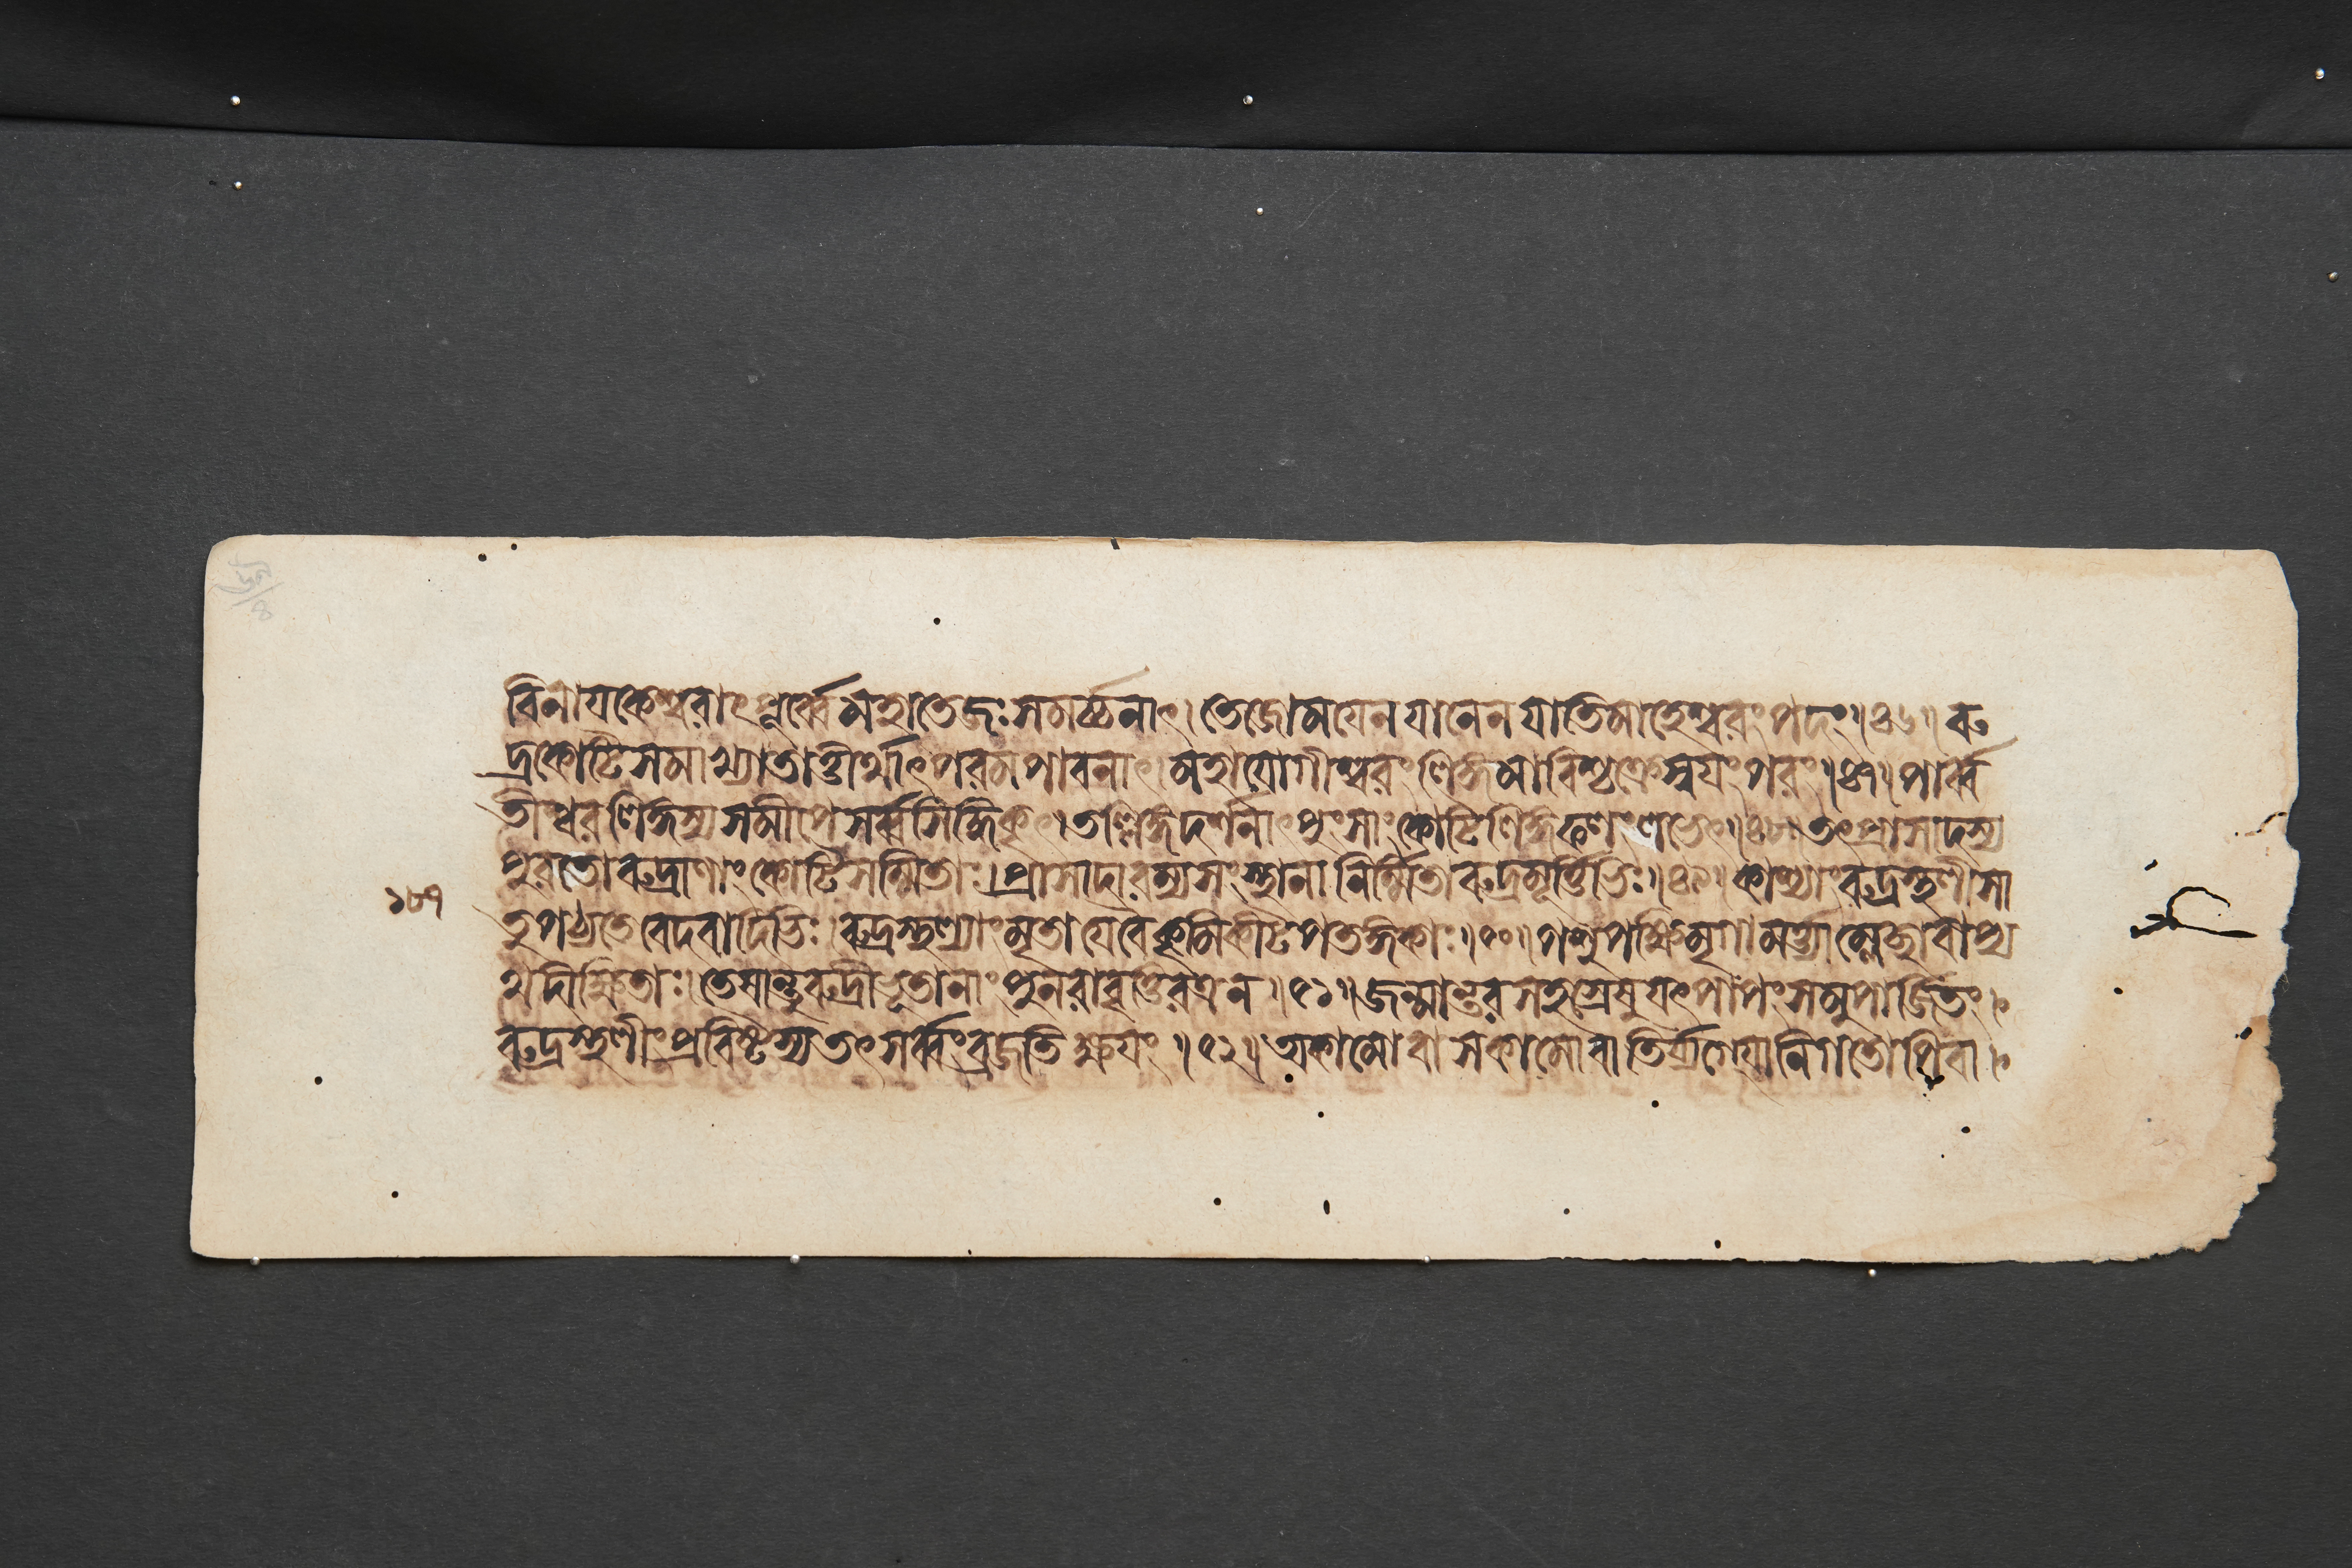 বিনাযকেশ্বরাৎপূর্ব্বে মহাতেজঃসমর্চ্চনাৎ। তেজোমযেন যানেন যাতি মাহেশ্বরং পদং॥৪৬॥ রু
দ্রকোটিসমাখ্যাতাত্তীর্থাৎ পরমপাবনাৎ। মহাযোগীশ্বরং লিঙ্গমাবিশ্চক্রে স্বযং পরং॥৪৭॥ পার্ব্ব
তীশ্বরলিঙ্গস্য সমীপে সর্ব্বসিদ্ধিকৃৎ। তল্লিঙ্গদর্শনাৎ পুংসাং কোটিলিঙ্গফলং লভেৎ॥৪৮॥ তৎপ্রাসাদস্য
পুরতো রুদ্রাণাং কোটিসম্মিতাঃ। প্রাসাদারম্যসংস্থানা নির্ম্মিতা রুদ্রমূর্ত্তিভিঃ॥৪৯॥ কাশ্যাং রুদ্রস্থলী সা
১৮৭
তু পঠ্যতে বেদবাদিভিঃ। রুদ্রস্থল্যাং মৃতা যে বৈ কৃমিকীটপতঙ্গকাঃ॥৫০॥ পশুপক্ষিমৃগামর্ত্ত্যা ম্লেচ্ছা বাপ্য
থ দীক্ষিতাঃ। তেষান্তু রুদ্রীভূতানাং পুনরাবৃত্তিরত্র ন॥৫১॥ জন্মান্তরসহস্রেষু যৎ পাপং সমুপার্জিতং।
রুদ্রস্থলীং প্রবিষ্টস্য তৎ সর্ব্বং ব্রজতি ক্ষযং॥৫২॥ অকামো বা সকামো বা তির্য্যগ্যোনিগতোপি বা।